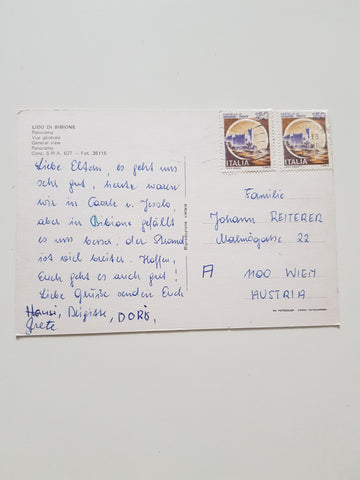 LIDO DI BIBIONE
Panorama
Vue générale
General view
Panorama
Conc. S.M.A. 627 - Fot. 36115
Liebe Eltern, es geht uns
sehr gut, heute waren
wir in Caorle u. Jesolo,
aber in Bibione gefällt
es uns besser, der Strand
ist viel breiter. Hoffen,
Euch geht es auch gut!
Liebe Grüße senden Euch
Hansi, Brigitte, DORIS,
Grete
ITALIA
ITALIA
Familie
Johann REITERER
Malmögasse 22
A 1100 WIEN
AUSTRIA